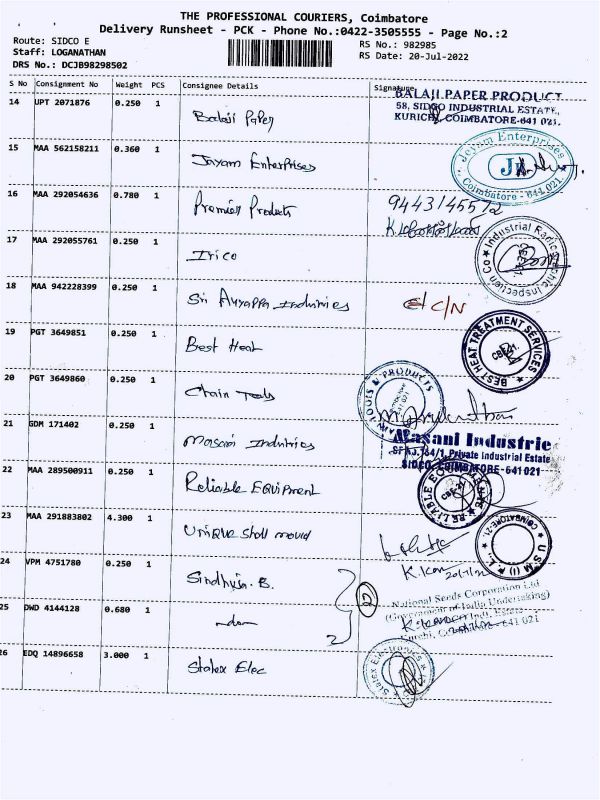 THE PROFESSIONAL COURIERS, Coimbatore
Delivery Runsheet - PCK - Phone No.:0422-3505555 - Page No.:2
Route: SIDCO E
RS No.: 982985
Staff: LOGANATHAN
RS Date: 20-Jul-2022
DRS No.: DCJB98298502
S No Consignment No Weight PCS Consignee Details Signature
14 UPT 2071876 0.250 1 Balaji Paper
BALAJI PAPER PRODUCT
58, SIDCO INDUSTRIAL ESTATE,
KURICHI, COIMBATORE-641 021.
15 MAA 562158211 0.360 1 Jayam Enterprises
Jayam Enterprises
Coimbatore - 641 021.
16 MAA 292054636 0.780 1 Premier Products
9443145572
17 MAA 292055761 0.250 1 Irico
Industrial Radiographic Inspection Co
18 MAA 942228399 0.250 1 Sri Ayyappa Industries
C/N
19 PGT 3649851 0.250 1 Best Heat
BEST HEAT TREATMENT SERVICES
CBE-21
20 PGT 3649860 0.250 1 Chain Tools
CHAIN TOOLS & PRODUCTS
21 GDM 171402 0.250 1 Masani Industries
Masani Industrie
184/1, Private Industrial Estate
SIDCO, COIMBATORE-641 021
22 MAA 289500911 0.250 1 Reliable Equipment
RELIABLE
CBE-21
23 MAA 291883802 4.300 1 Unique Shell mould
U S M (I) P. L.,
COIMBATORE-21.
24 VPM 4751780 0.250 1 Sindhuja. B.
National Seeds Corporation Ltd
(Government of India Undertaking)
25 DWD 4144128 0.680 1 -do-
Kurichi, Coimbatore-641 021
26 EDQ 14896658 3.000 1 Statex Elec
Statex Electronics